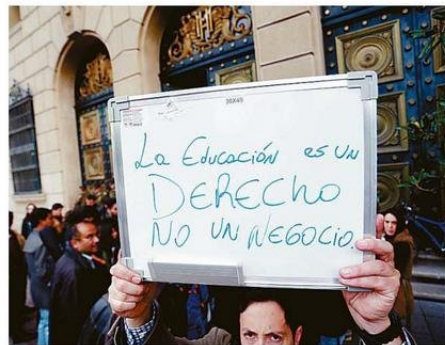 30X40
La Educación es UN
DERECHO
NO UN NEGOCIO.